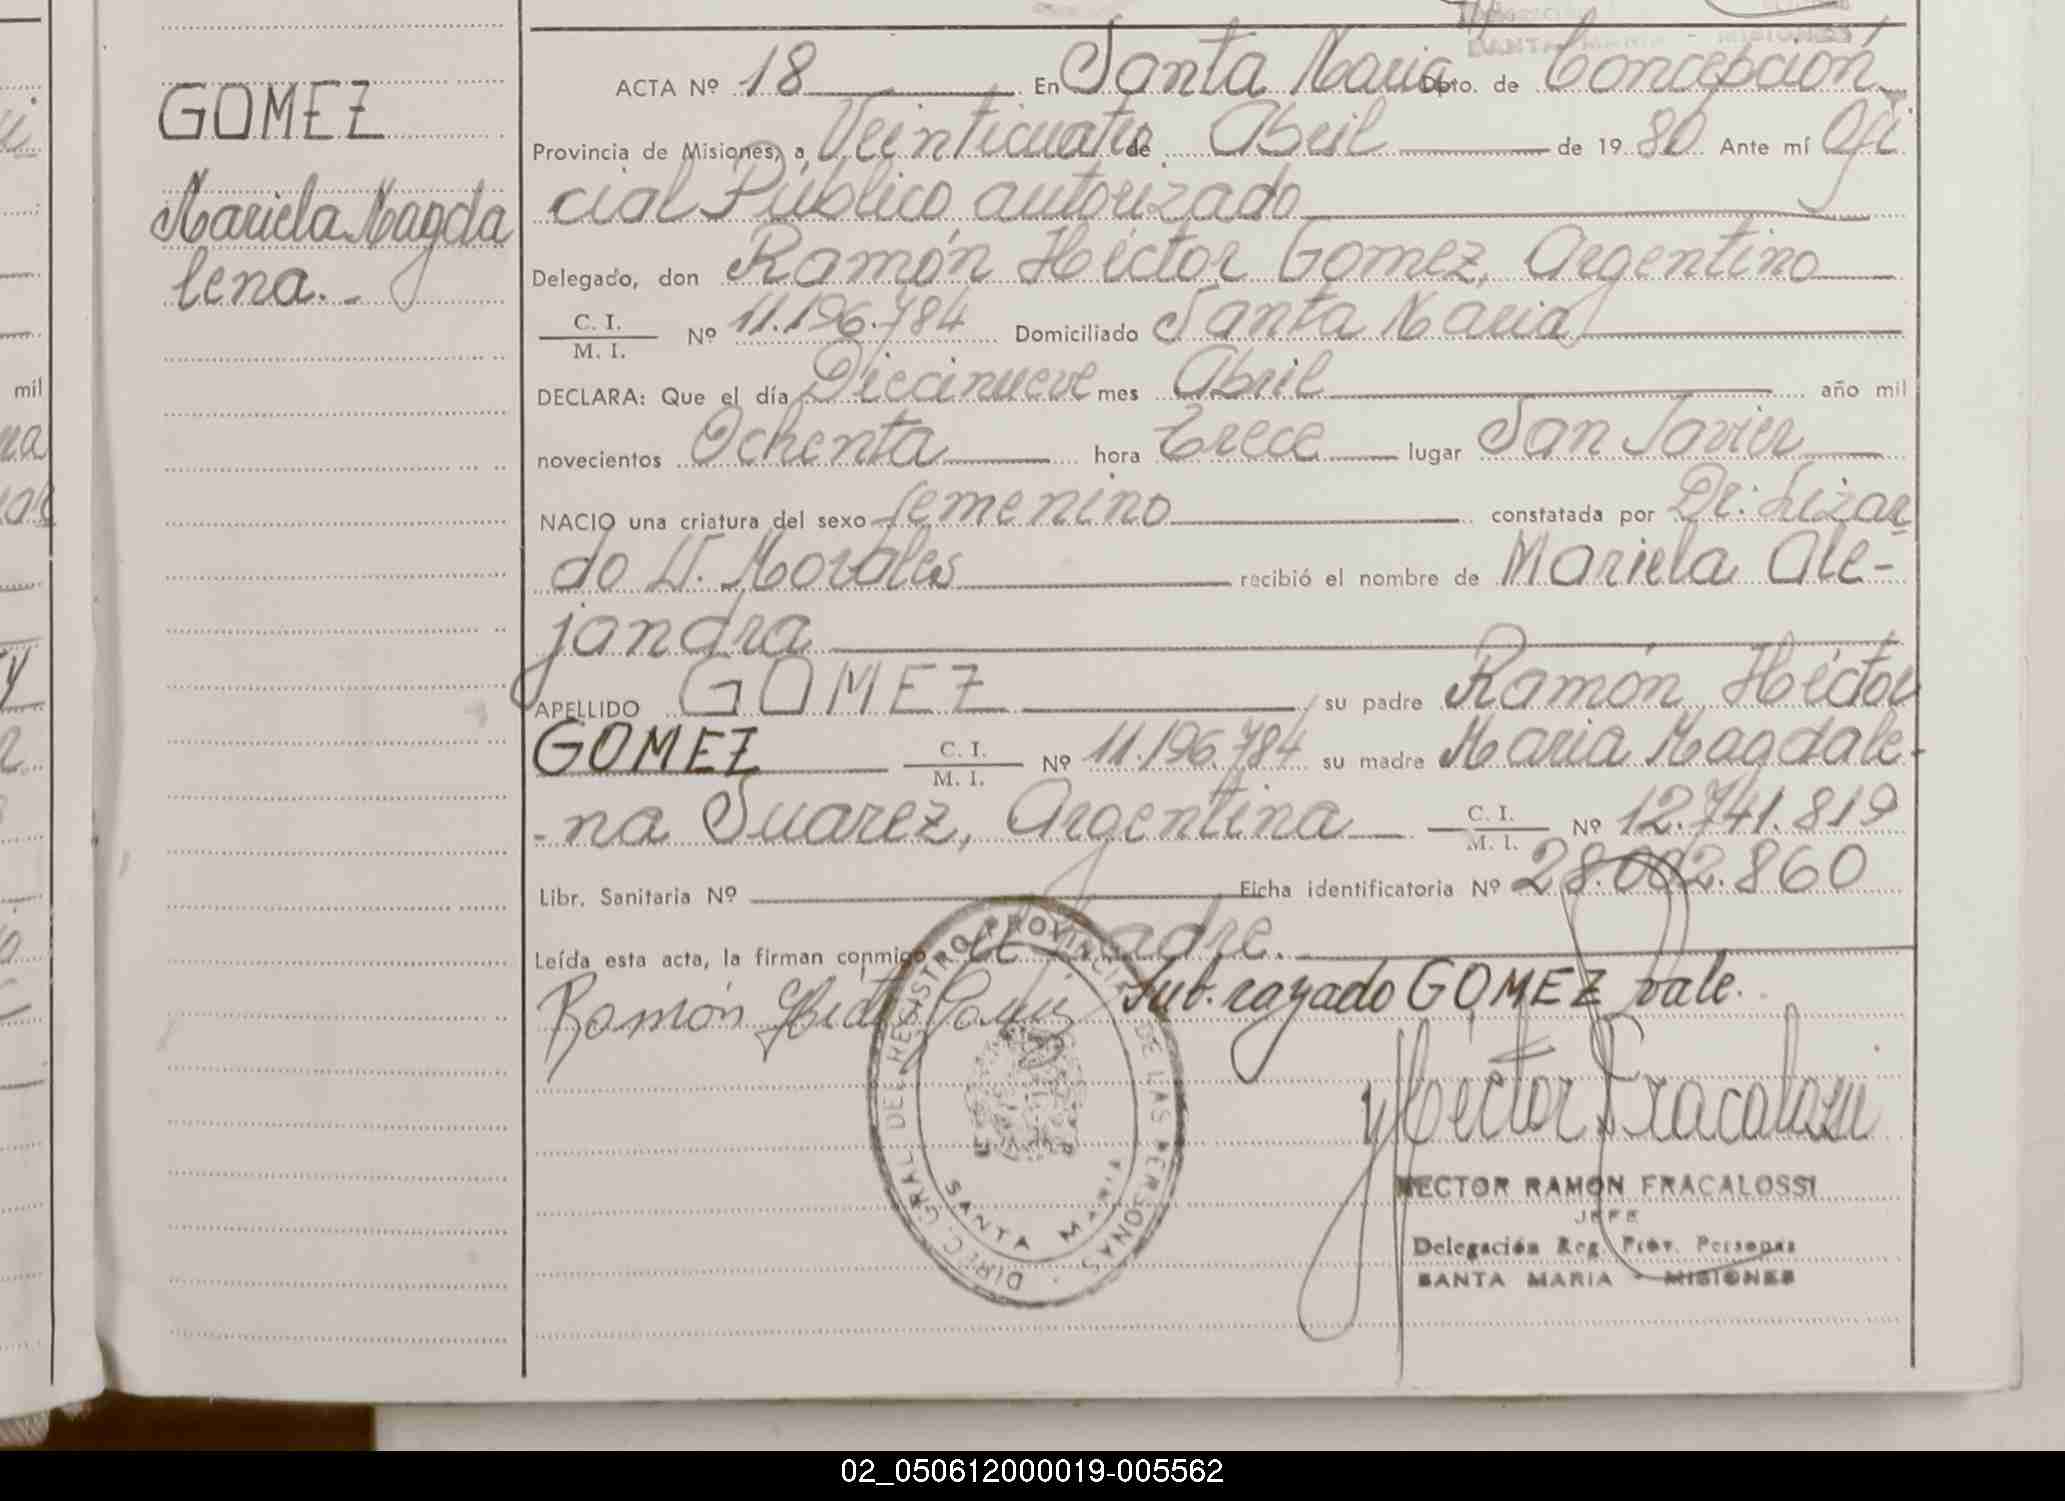 GOMEZ
Mariela Magda
lena.-
mil
ACTA Nº 18 En Santa Maria Dpto. de Concepción
Provincia de Misiones, a Veinticuatro de Abril de 1980 Ante mí Ofi
cial Público autorizado
Delegado, don Ramón Héctor Gomez, Argentino
C. I.
M. I. Nº 11.196.784 Domiciliado Santa Maria
DECLARA: Que el día Diecinueve mes Abril año mil
novecientos Ochenta hora Trece lugar San Javier
NACIO una criatura del sexo femenino constatada por Dr: Lizar
do W. Morales recibió el nombre de Mariela Ale-
jandra
APELLIDO GOMEZ su padre Ramón Héctor
GOMEZ C. I.
M. I. Nº 11.196.784 su madre Maria Magdale-
-na Suarez, Argentina C. I.
M. I. Nº 12.741.819
Libr. Sanitaria Nº Ficha identificatoria Nº 28.002.860
Leída esta acta, la firman conmigo el Padre.
Sub.razado GOMEZ vale.
Ramón Héctor Gomez
Héctor Fracalossi
DIREC. GRAL. DEL REGISTRO PROVINCIAL DE LAS PERSONAS
SANTA MARIA
HECTOR RAMON FRACALOSSI
JEFE
Delegación Reg. Prov. Personas
SANTA MARIA - MISIONES
02_050612000019-005562